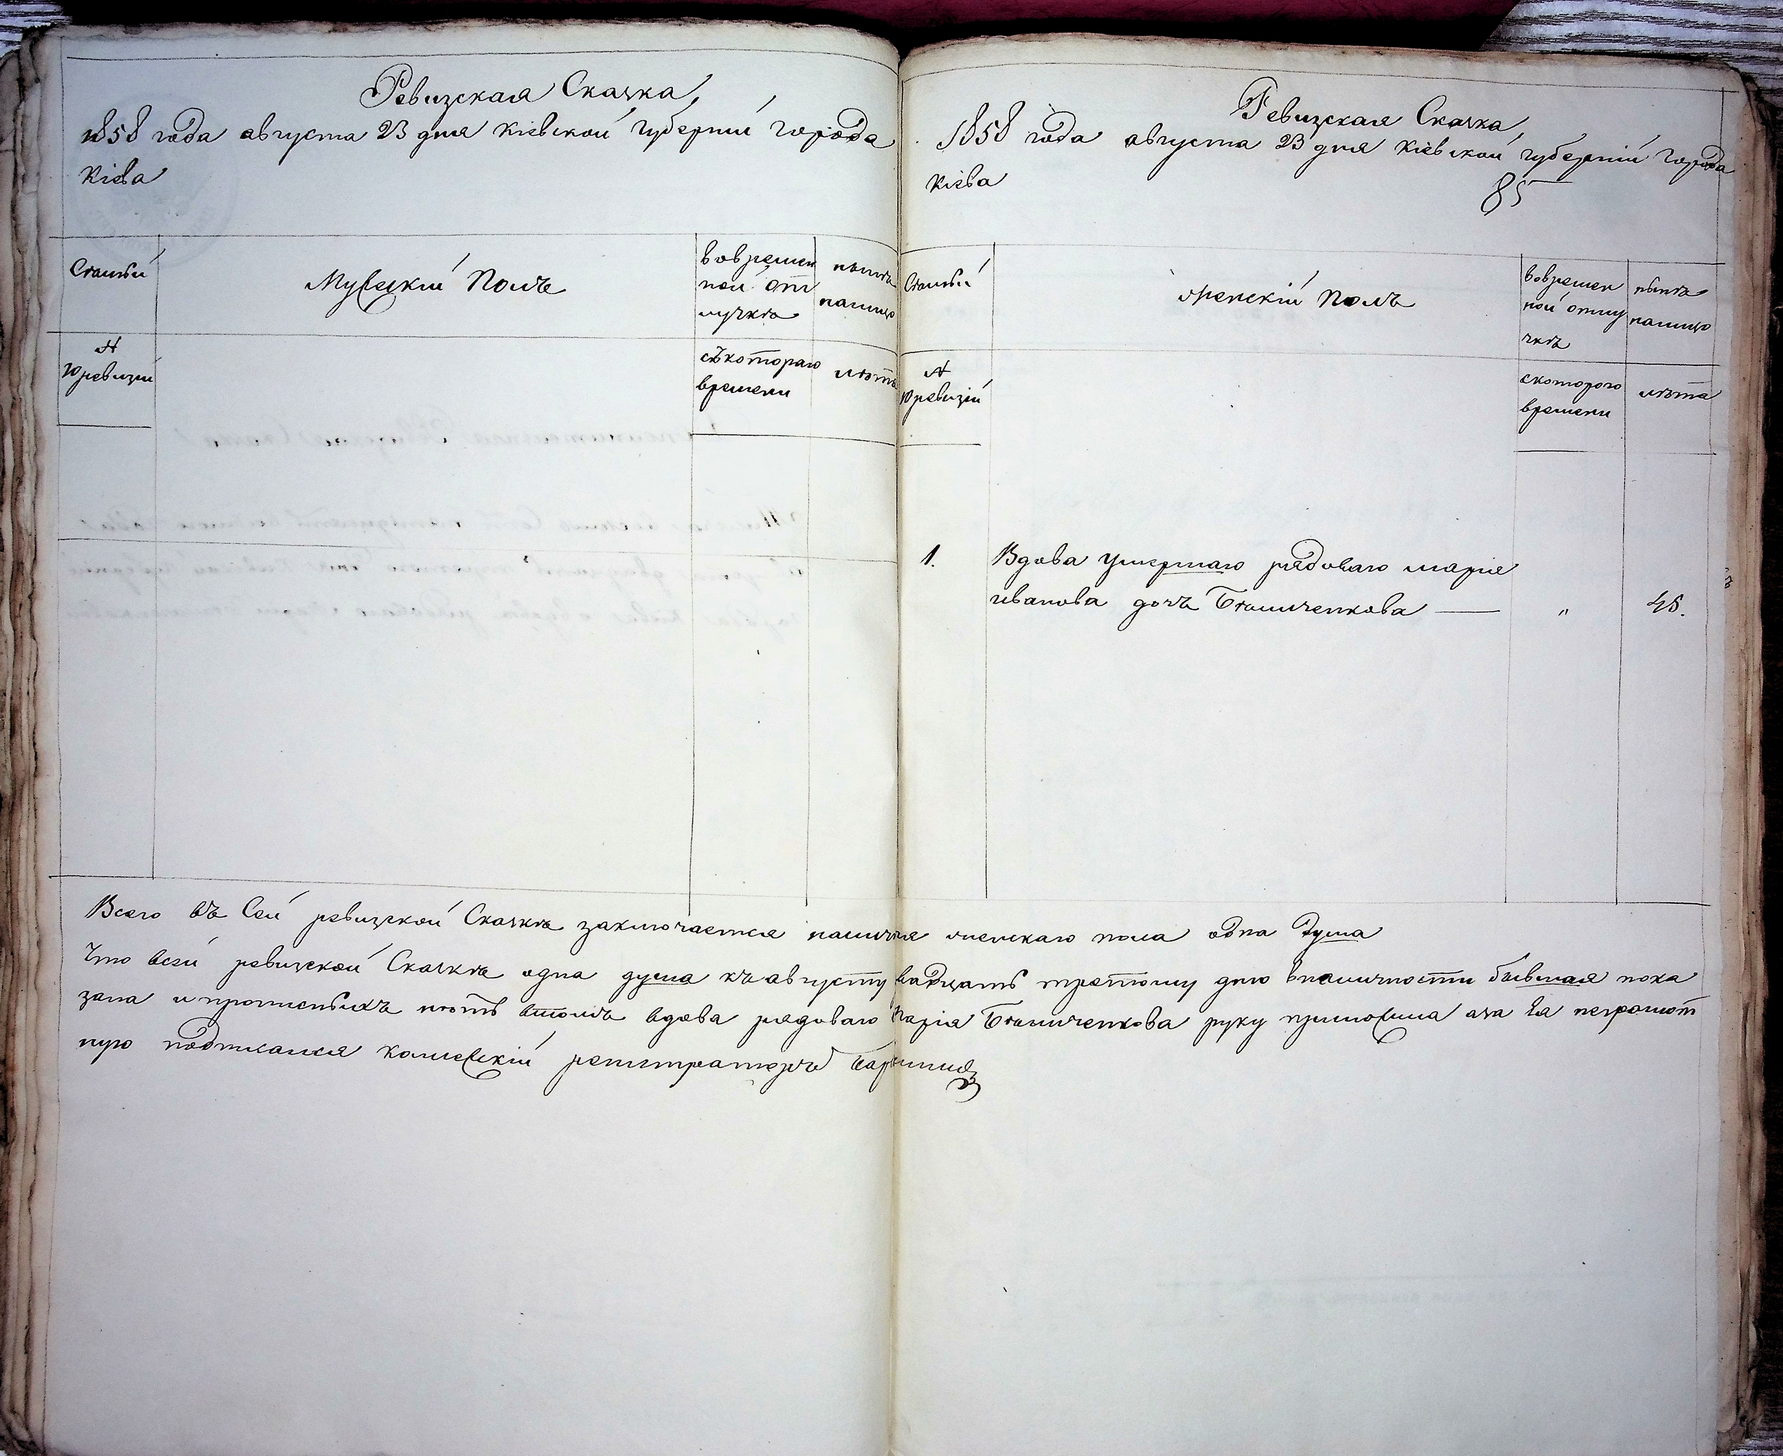 Ревизская Сказка
1858 года августа 23 дня Кіевской губерніи города
Кіева
Статьи
Мужескій Полъ
вовремен
ной от
лучкѣ
нынѣ
налицо
№
10 ревизіи
съкотораго
времени
лѣтъ
Ревизская Сказка
1858 года августа 23 дня Кіевской губерніи города
Кіева
85
Статьи
женскій Полъ
вовремен
ной отлу
чкѣ
нынѣ
налицо
№
10 ревизіи
скоторого
времени
лѣта
1.
Вдова умершаго рядоваго Марія
иванова дочь Сташченкова
„
45.
Всего въ Сей ревизской Сказкѣ заключается налична женскаго пола одна душа
Что всей ревизской Сказкѣ одна душа къ августу двадцать третому дню вналичности бывшая пока
зана и прописныхъ нѣтъ втомъ вдова рядоваго Марія Сташченкова руку приложила аза Ея неграмот
ную подписался колежскій регистраторъ